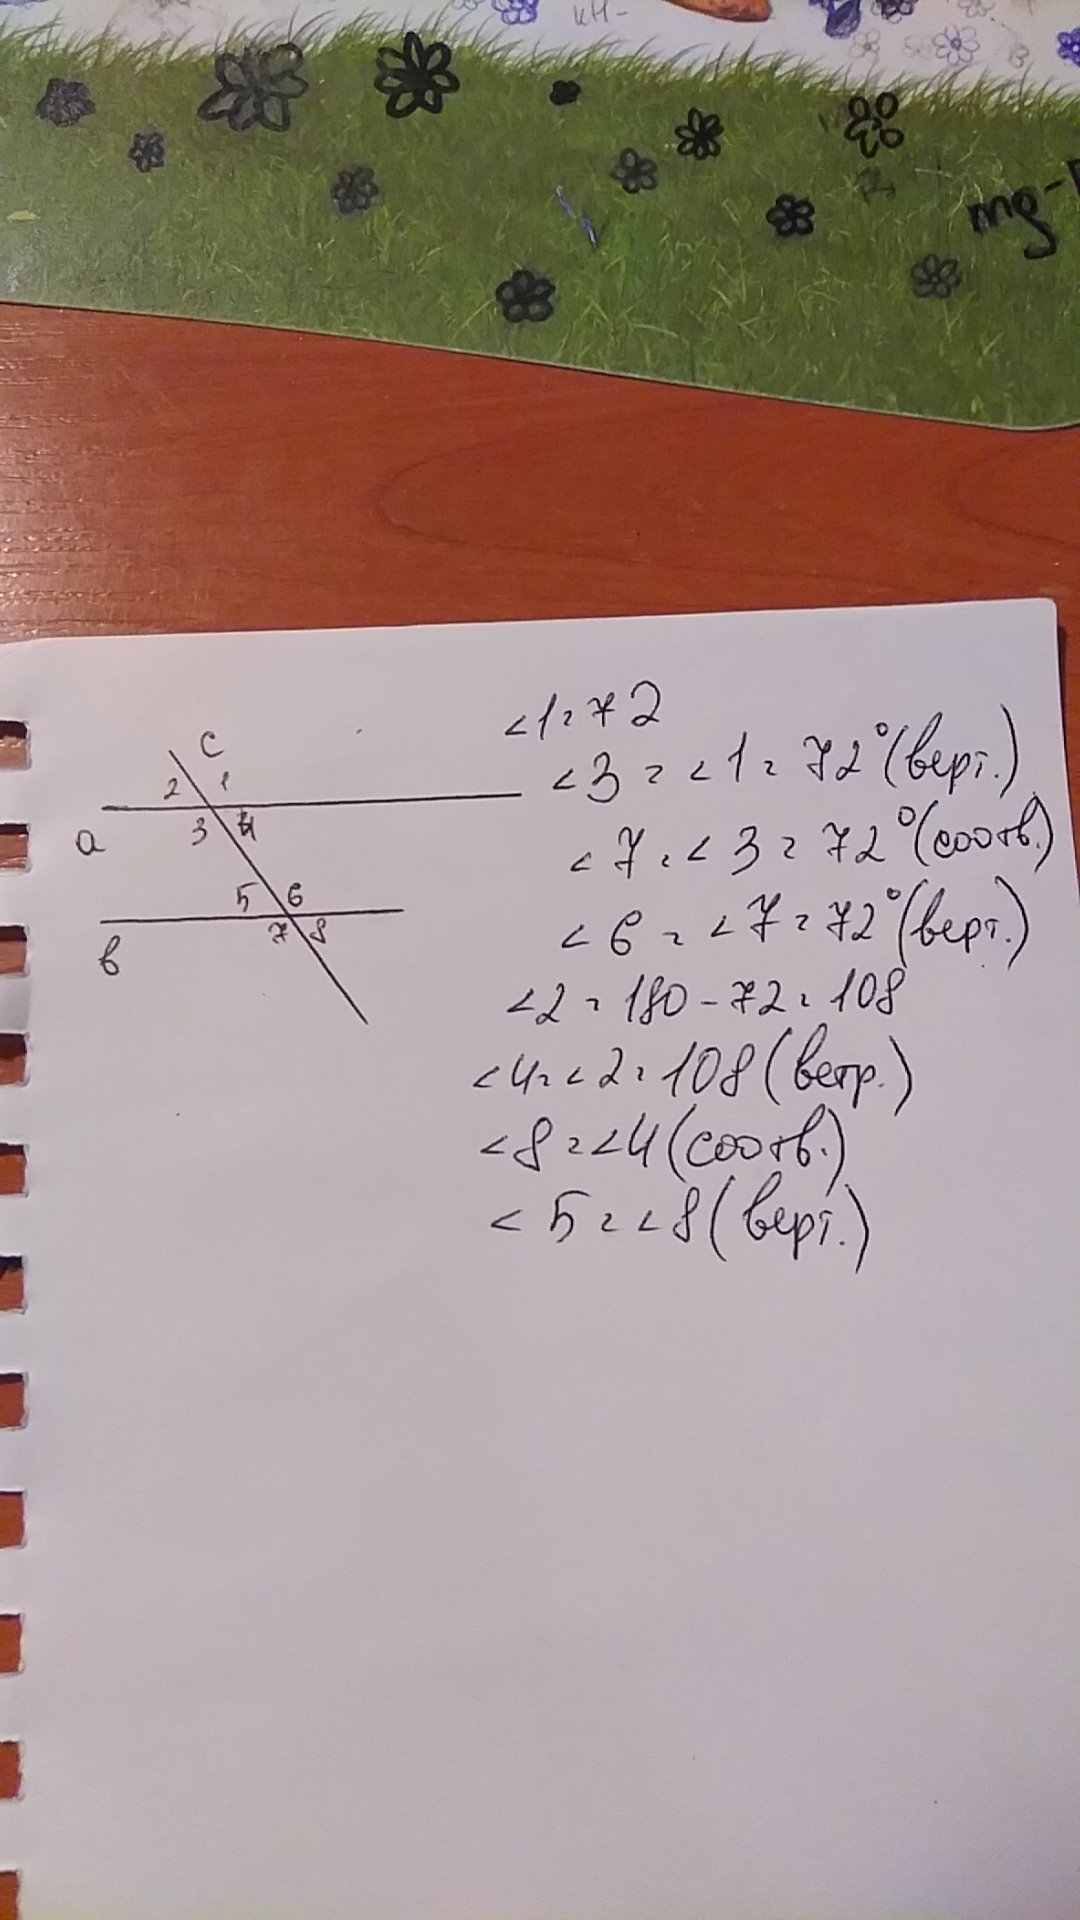 кн-
mg-
c
2 1
a
3 4
5 6
в
7 8
<1=72
<3=<1=72°(верт.)
<7=<3=72°(соотв.)
<6=<7=72°(верт.)
<2=180-72=108
<4=<2=108(ветр.)
<8=<4(соотв.)
<5=<8(верт.)